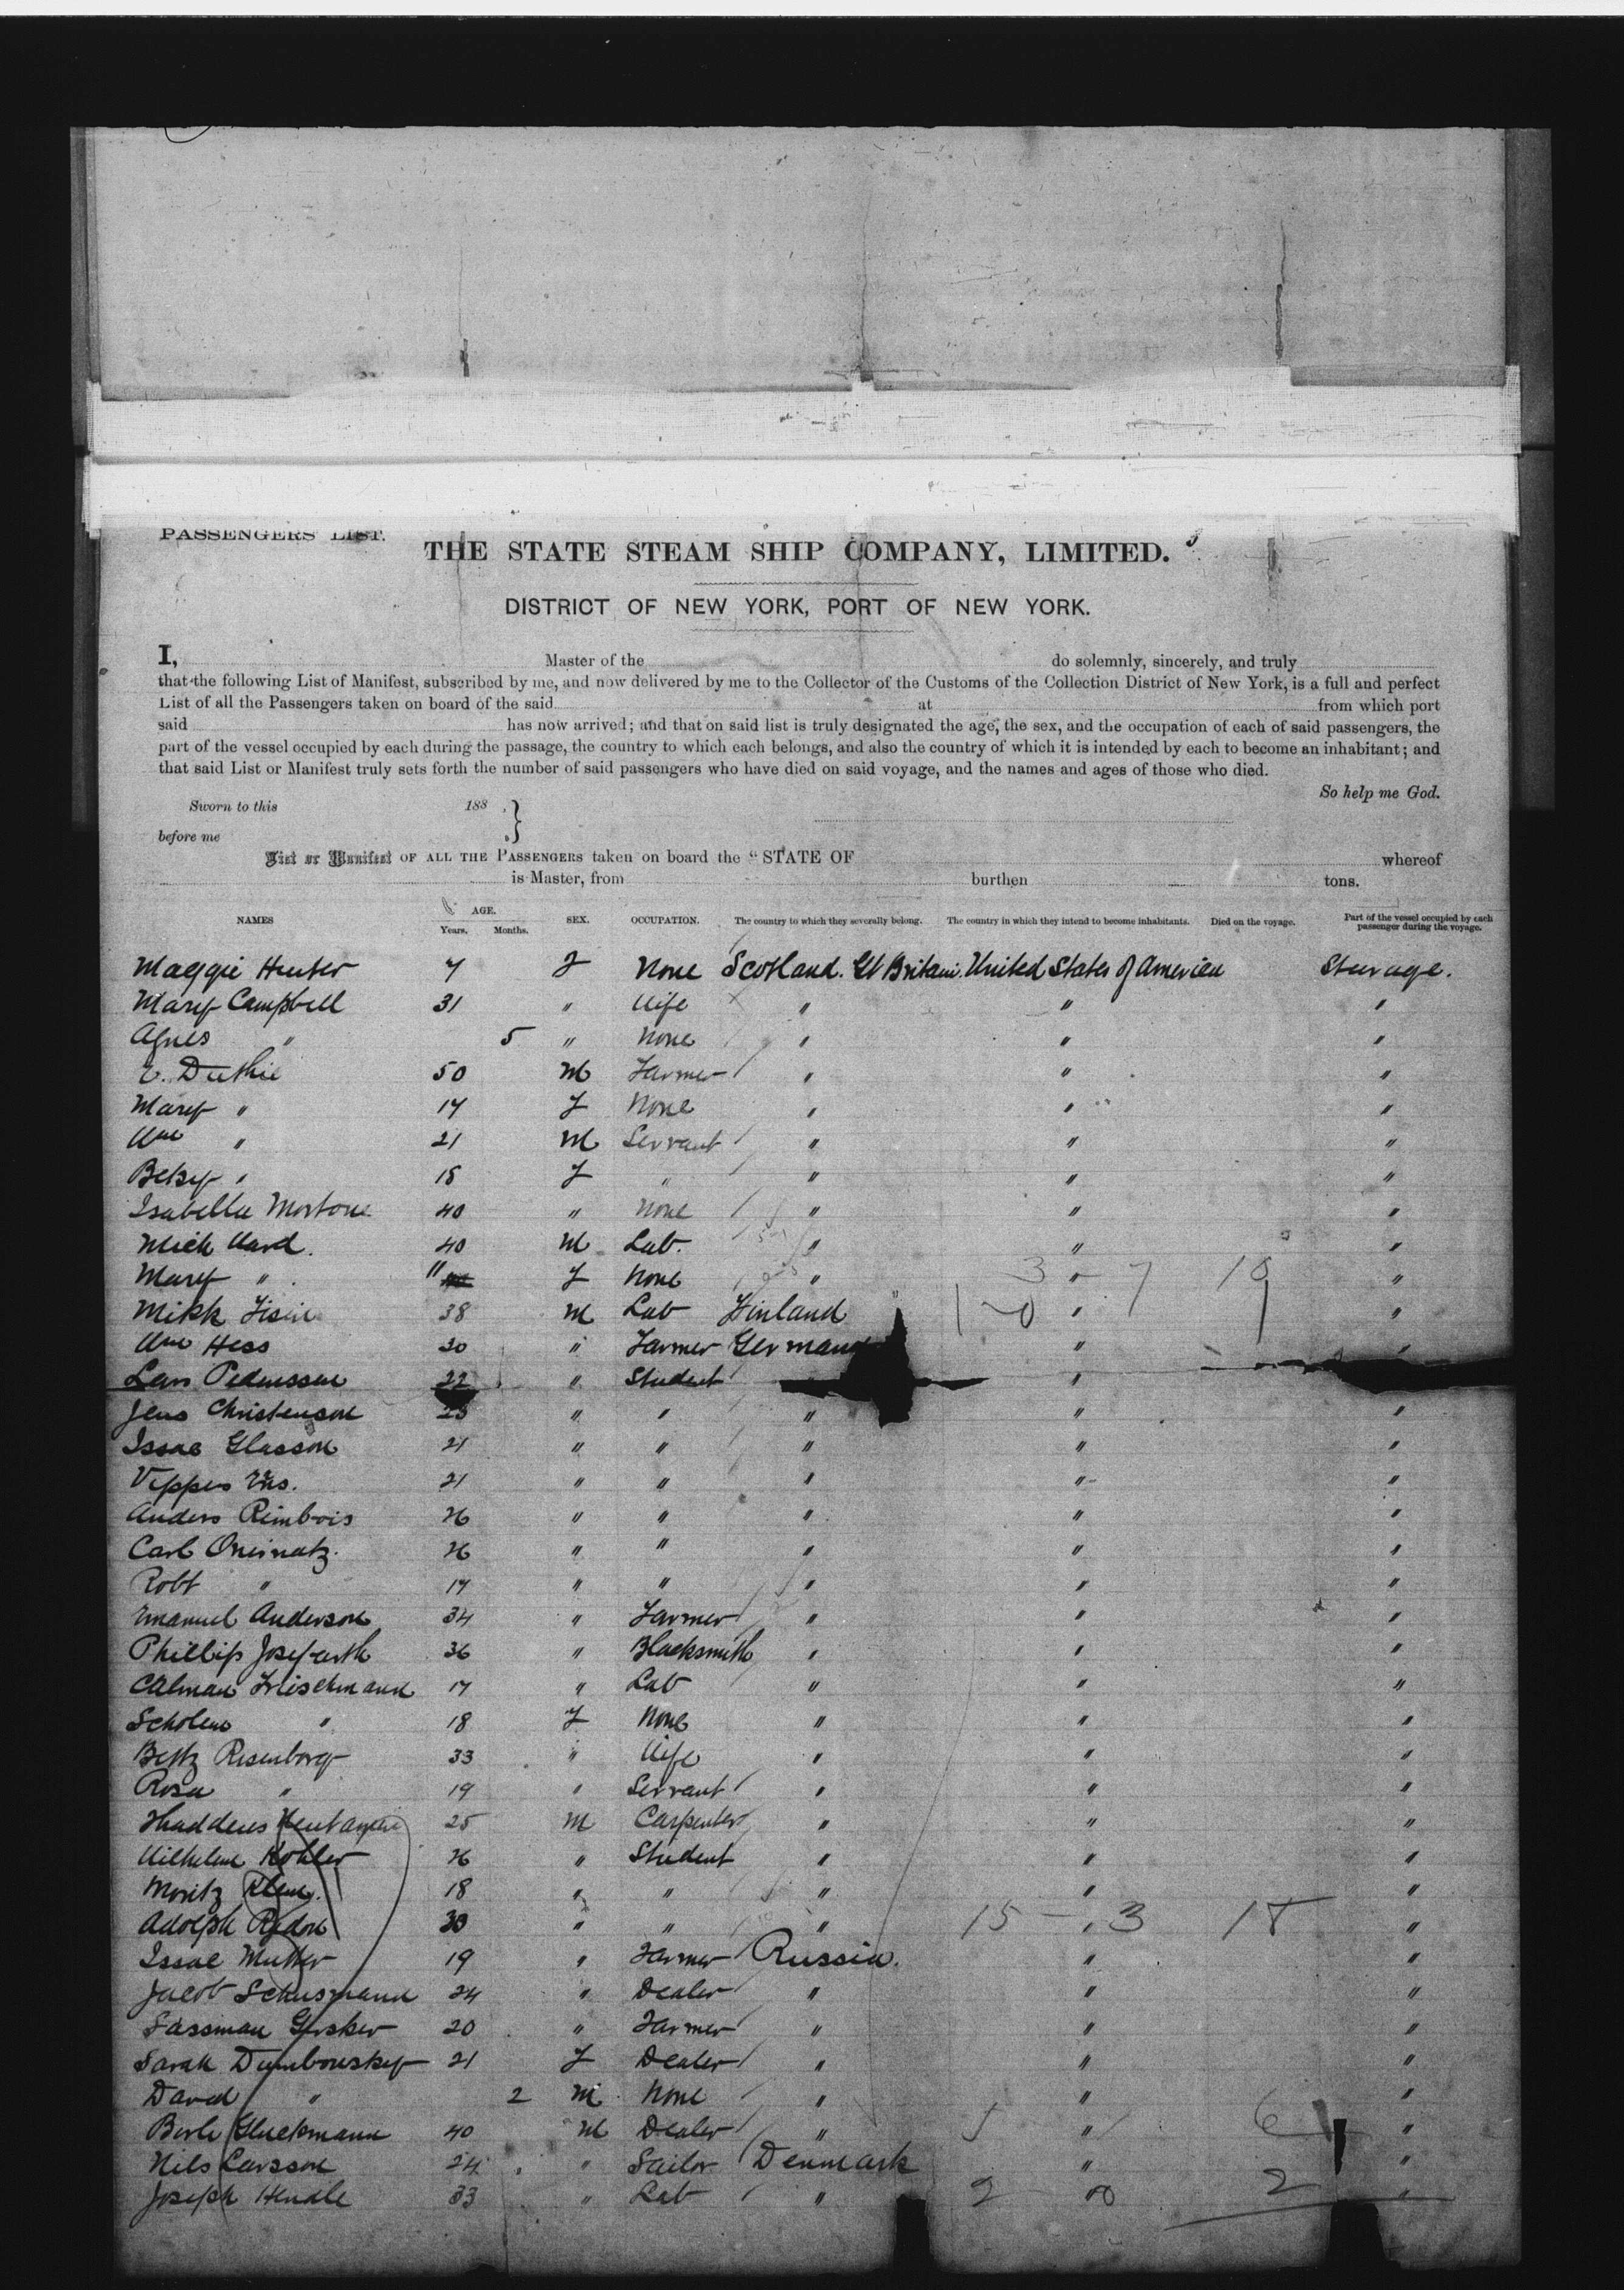 PASSENGERS' LIST.
THE STATE STEAM SHIP COMPANY, LIMITED.
DISTRICT OF NEW YORK, PORT OF NEW YORK.
I, Master of the do solemnly, sincerely, and truly
that the following List of Manifest, subscribed by me, and now delivered by me to the Collector of the Customs of the Collection District of New York, is a full and perfect
List of all the Passengers taken on board of the said at from which port
said has now arrived; and that on said list is truly designated the age, the sex, and the occupation of each of said passengers, the
part of the vessel occupied by each during the passage, the country to which each belongs, and also the country of which it is intended by each to become an inhabitant; and
that said List or Manifest truly sets forth the number of said passengers who have died on said voyage, and the names and ages of those who died.
So help me God.
Sworn to this 188
before me
List or Manifest OF ALL THE PASSENGERS taken on board the "STATE OF whereof
is Master, from burthen tons.
NAMES AGE. Years. Months. SEX. OCCUPATION. The country to which they severally belong. The country in which they intend to become inhabitants. Died on the voyage. Part of the vessel occupied by each passenger during the voyage.
Maggie Hunter 7 F None Scotland. Gt Britain. United States of America Steerage.
Mary Campbell 31 " Wife " " "
Agnes " 5 " None " " "
Duthie 50 M Farmer " " "
Mary " 17 F None " " "
Wm " 21 M Servant " " "
Betsy " 18 F " " " "
Isabella Mortone 40 " None " " "
Mick Ward. 40 M Lab. " " "
Mary " 11 F None " 3 - 7 10 "
Mikk 38 M Lab Finland " "
Wm Hess 30 " Farmer Germany " "
Lars Pedersson 22 " Student "
Jens Christenson 23 " " " " "
Issac Glasson 21 " " " " "
21 " " " " "
Anders Rimbois 26 " " " " "
Carl 26 " " " " "
Robt " 17 " " " " "
Emanuel Anderson 34 " Farmer " " "
Phillip 36 " Blacksmith " " "
Calman Frischmann 17 " Lab " " "
Scholem " 18 F None " " "
Rosenborg 33 " Wife " " "
Rosa " 19 " Servant " " "
Thaddeus 25 M Carpenter " " "
Wilhelm Kohler 26 " Student " " "
Moritz Klein. 18 " " " " "
Adolph Redon 30 " " " 15 - 3 18 "
Issac Mutter 19 " Farmer Russia. " "
Jacob Schusmann 24 " Dealer " " "
Sassman 20 " Farmer " " "
Sarah Dumbowsky 21 F Dealer " " "
David " 2 M None " " "
Berle Gluckmann 40 M Dealer " 5 " 6 "
Nils Larsson 24 " Sailor Denmark " "
Joseph Hendle 33 " Lab " 2 " 0 2 "